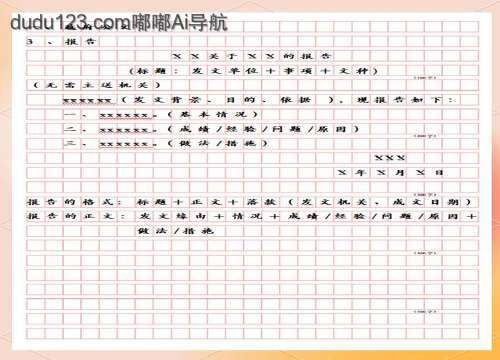 dudu123.com嘟嘟Ai导航
3、报告
XX关于XX的报告
(标题：发文单位＋事项＋文种)
(无需主送机关)
xxxxxx(发文背景、目的、依据)，现报告如下：
一、xxxxxx。(基本情况)
二、xxxxxx。(成绩/经验/问题/原因)
三、xxxxxx。(做法/措施)
XXX
X年X月X日
报告的格式：标题＋正文＋落款(发文机关、成文日期)
报告的正文：发文缘由＋情况＋成绩/经验/问题/原因＋
做法/措施